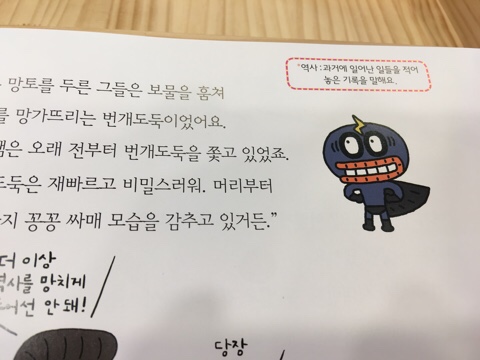 *역사 : 과거에 일어난 일들을 적어
놓은 기록을 말해요.
망토를 두른 그들은 보물을 훔쳐
를 망가뜨리는 번개도둑이었어요.
은 오래 전부터 번개도둑을 쫓고 있었죠.
도둑은 재빠르고 비밀스러워. 머리부터
지 꽁꽁 싸매 모습을 감추고 있거든.”
더 이상
역사를 망치게
선 안 돼!
당장